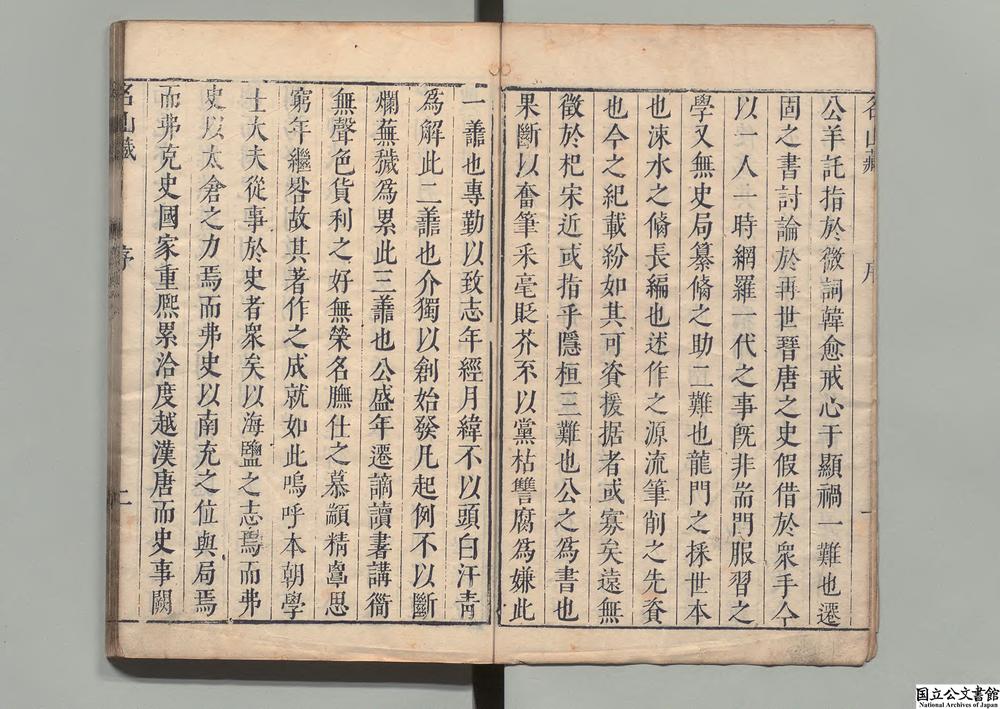 名山藏
序
一
公羊託指於微詞韓愈戒心于顯禍一難也遷
固之書討論於再世晉唐之史假借於衆手今
以一人一時網羅一代之事旣非耑門服習之
學又無史局纂脩之助二難也龍門之採世本
也涑水之脩長編也述作之源流筆削之先資
也今之紀載紛如其可資援据者或寡矣遠無
徵於杞宋近或指乎隱桓三難也公之爲書也
果斷以奮筆采毫貶芥不以黨枯讐腐爲嫌此
一善也專勤以致志年經月緯不以頭白汗靑
爲解此二善也介獨以創始發凡起例不以斷
爛蕪穢爲累此三善也公盛年遷謫讀書講衟
無聲色貨利之好無榮名膴仕之慕顓精覃思
窮年繼晷故其著作之成就如此嗚呼本朝學
士大夫從事於史者衆矣以海鹽之志焉而弗
史以太倉之力焉而弗史以南充之位與局焉
而弗克史國家重熙累洽度越漢唐而史事闕
名山藏
序
二
国立公文書館
National Archives of Japan